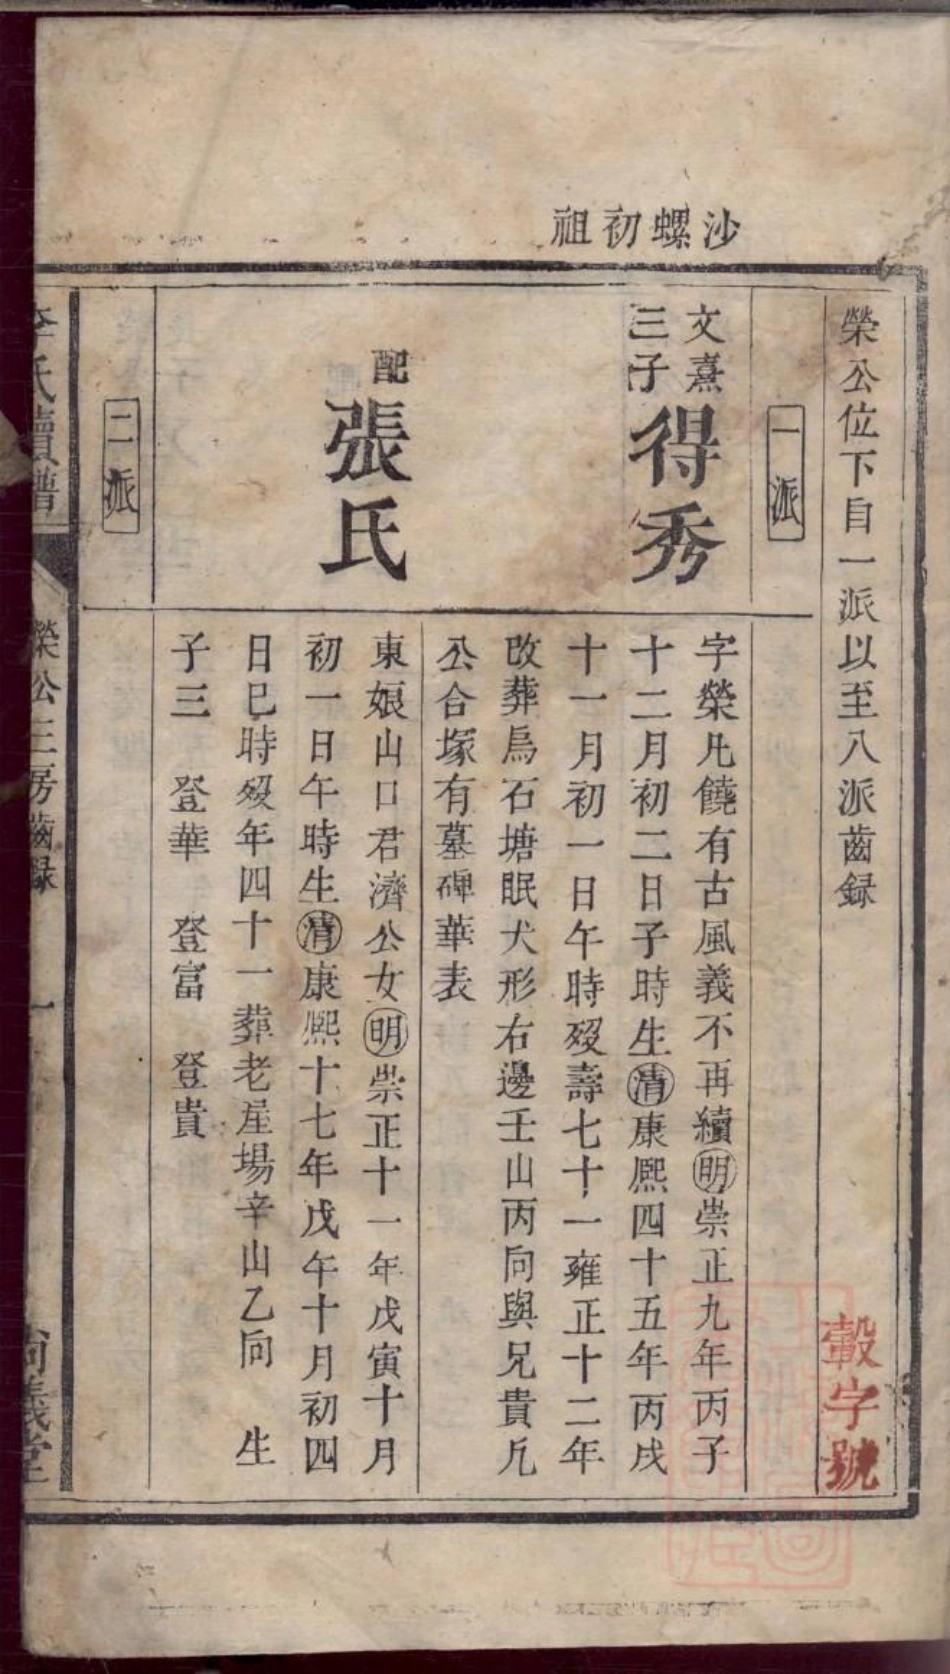 沙螺初祖
榮公位下自一派以至八派齒録
轂字號
一派
文熹
三子
得秀
字榮凡饒有古風義不再續明崇正九年丙子
十二月初二日子時生清康熙四十五年丙戌
十一月初一日午時歿壽七十一雍正十二年
改葬烏石塘眠犬形右邊壬山丙向與兄貴凡
公合塚有墓碑華表
配張氏
東娘山口君濟公女明崇正十一年戊寅十月
初一日午時生清康熙十七年戊午十月初四
日巳時歿年四十一葬老屋場辛山乙向 生
子三 登華 登富 登貴
二派
李氏續譜
榮公三房齒録
一
尚義堂